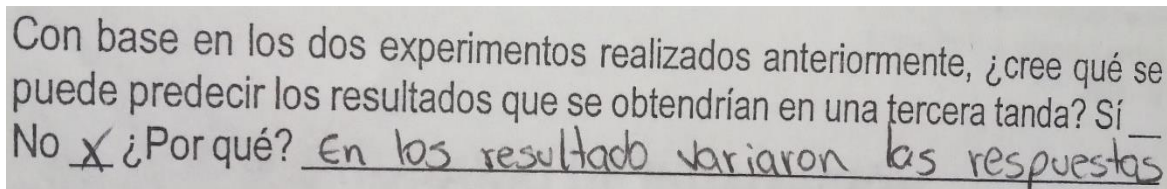 Con base en los dos experimentos realizados anteriormente, ¿cree qué se
puede predecir los resultados que se obtendrían en una tercera tanda? Sí __
No X ¿Por qué? En los resultado variaron las respuestas